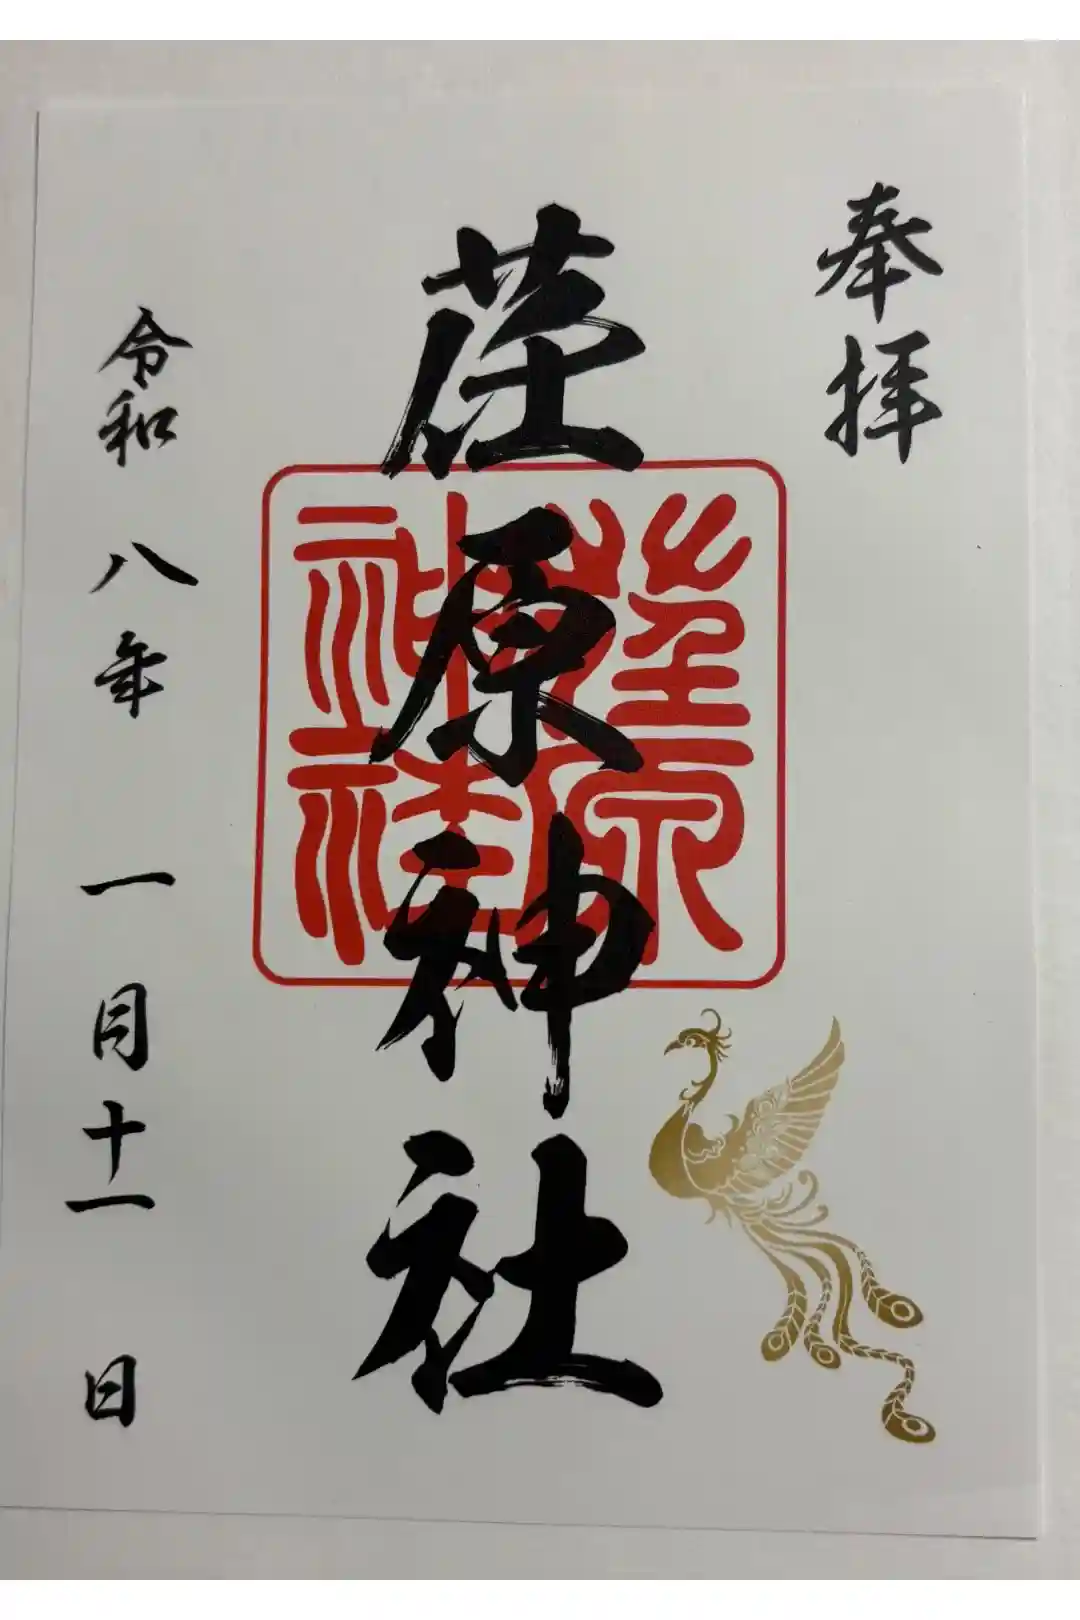 奉拝
荏原神社
荏原
神社
令和八年一月十一日